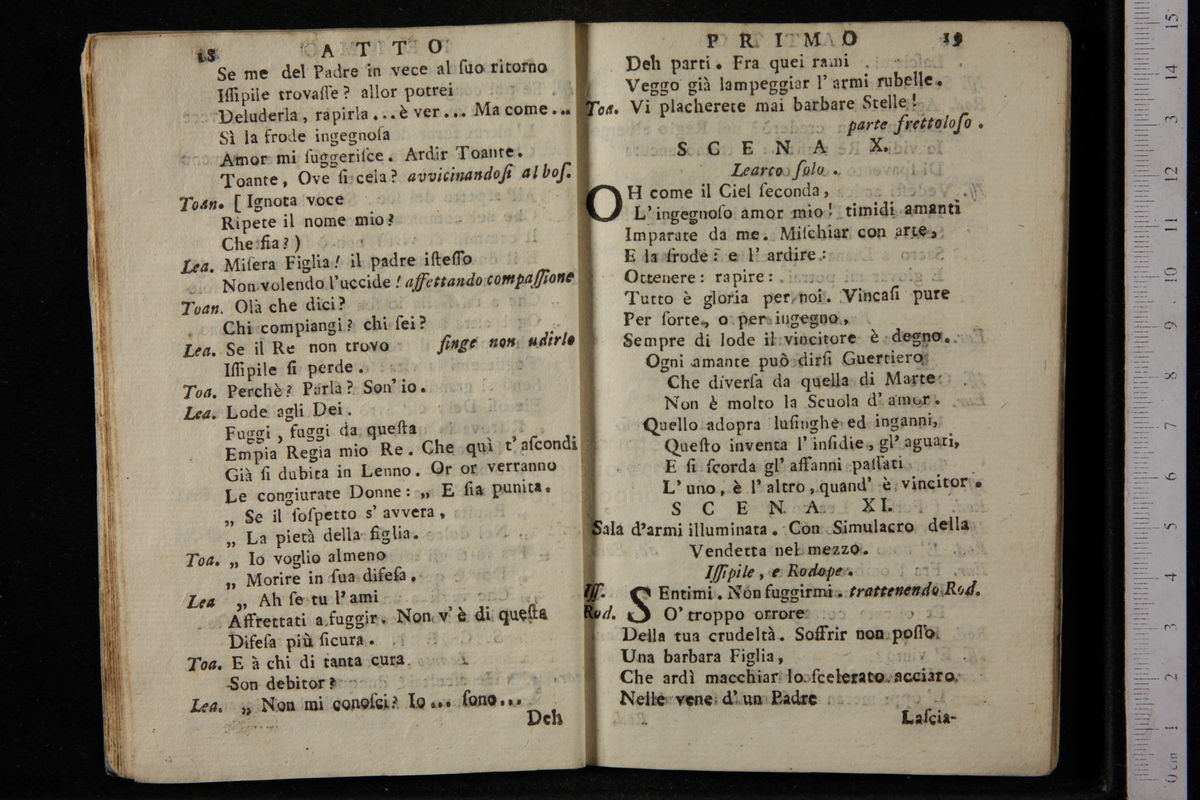 18 ATTO
Se me del Padre in vece al ſuo ritorno
Iſſipile trovaſſe? allor potrei
Deluderla, rapirla... è ver... Ma come...
Sì la frode ingegnoſa
Amor mi ſuggeriſce. Ardir Toante.
Toante, Ove ſi cela? avvicinandoſi al boſ.
Toan. [ Ignota voce
Ripete il nome mio?
Che ſia? )
Lea. Miſera Figlia! il padre iſteſſo
Non volendo l'uccide! affettando compaſſione
Toan. Olà che dici?
Chi compiangi? chi ſei?
Lea. Se il Re non trovo finge non udirlo
Iſſipile ſi perde.
Toa. Perchè? Parla? Son' io.
Lea. Lode agli Dei.
Fuggi, fuggi da queſta
Empia Regia mio Re. Che quì t' aſcondi
Già ſi dubita in Lenno. Or or verranno
Le congiurate Donne: „ E ſia punita.
„ Se il ſoſpetto s' avvera,
„ La pietà della figlia.
Toa. „ Io voglio almeno
„ Morire in ſua difeſa.
Lea „ Ah ſe tu l' ami
Affrettati a fuggir. Non v' è di queſta
Difeſa più ſicura.
Toa. E à chi di tanta cura
Son debitor?
Lea. „ Non mi conoſci? Io... ſono...
Deh
PRIMO 19
Deh parti. Fra quei rami
Veggo già lampeggiar l' armi rubelle.
Toa. Vi placherete mai barbare Stelle!
parte frettoloſo.
SCENA X.
Learco ſolo.
OH come il Ciel ſeconda,
L' ingegnoſo amor mio! timidi amanti
Imparate da me. Miſchiar con arte,
E la frode: e l' ardire:
Ottenere: rapire:
Tutto è gloria per noi. Vincaſi pure
Per ſorte, o per ingegno,
Sempre di lode il vincitore è degno.
Ogni amante può dirſi Guerriero
Che diverſa da quella di Marte
Non è molto la Scuola d' amor.
Quello adopra luſinghe ed inganni,
Queſto inventa l' inſidie, gl' aguati,
E ſi ſcorda gl' affanni paſſati
L' uno, è l' altro, quand' è vincitor.
SCENA XI.
Sala d'armi illuminata. Con Simulacro della
Vendetta nel mezzo.
Iſſipile, e Rodope.
Iſſ. SEntimi. Non fuggirmi. trattenendo Rod.
Rod. O' troppo orrore
Della tua crudeltà. Soffrir non poſſo
Una barbara Figlia,
Che ardì macchiar lo ſcelerato acciaro
Nelle vene d' un Padre
Laſcia-
15
14
13
12
11
10
9
8
7
6
5
4
3
2
1
0 cm